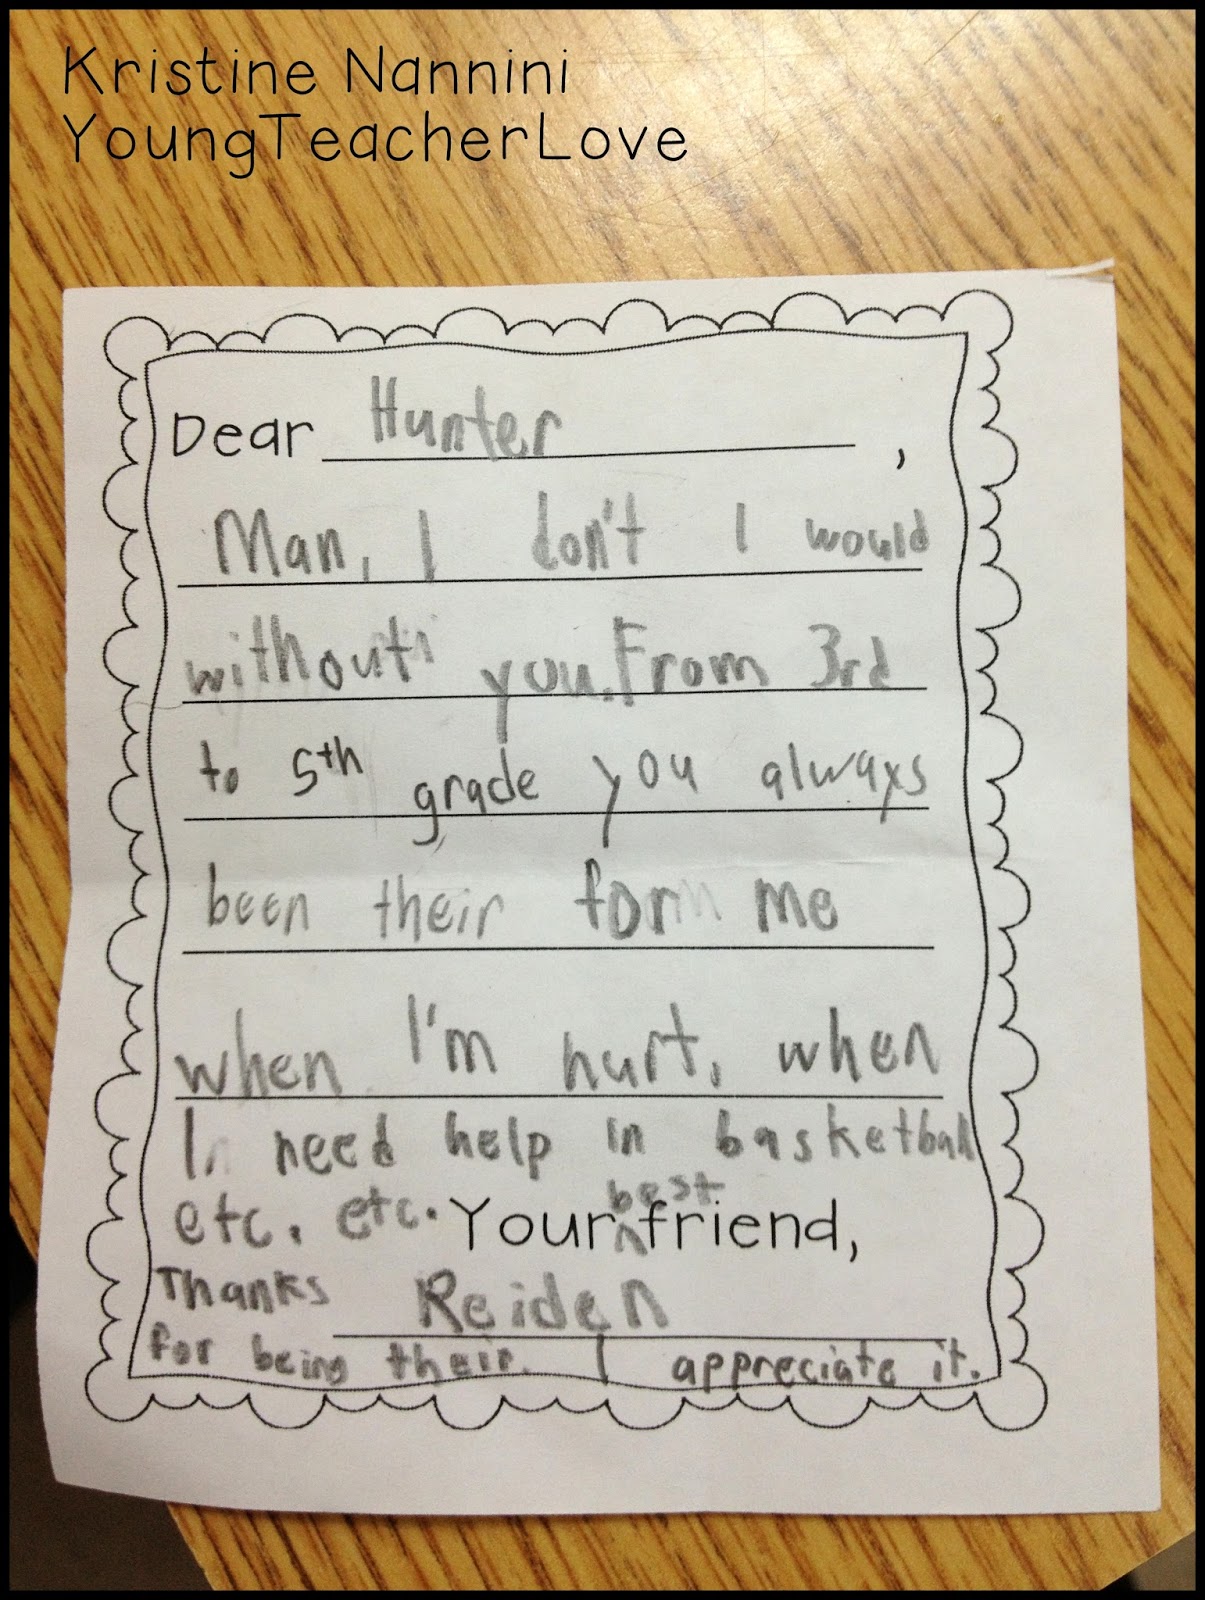 Kristine Nannini
YoungTeacherLove
Dear Hunter,
Man, I don't I would
without you. From 3rd
to 5th grade you always
been their for me
when I'm hurt, when
I need help in basketball
etc. etc. Your best friend,
Thanks Reiden
for being their. I appreciate it.